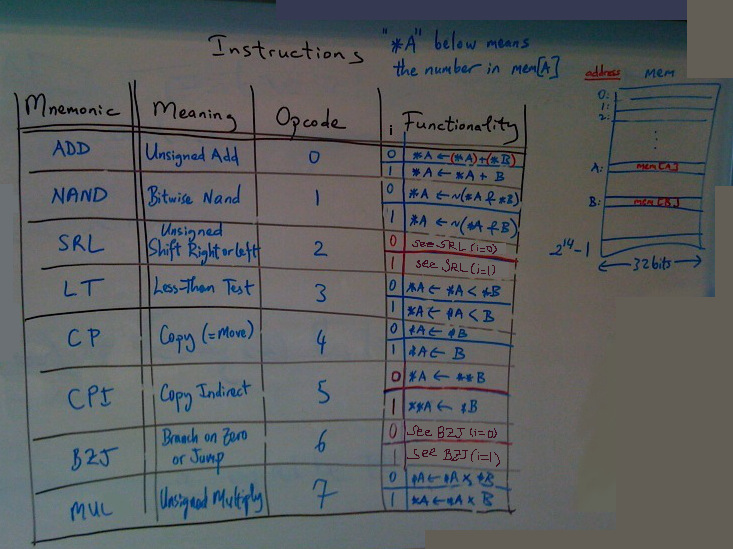 Instructions
"*A" below means
the number in mem[A]
address mem
0:
1:
2:
A: mem[A]
B: mem[B]
2^14-1
32 bits
Mnemonic Meaning Opcode i Functionality
ADD Unsigned Add 0 0 *A ← (*A)+(*B)
1 *A ← *A + B
NAND Bitwise Nand 1 0 *A ← ~(*A & *B)
1 *A ← ~(*A & B)
SRL Unsigned Shift Right or Left 2 0 see SRL (i=0)
1 see SRL (i=1)
LT Less-Than Test 3 0 *A ← *A < *B
1 *A ← *A < B
CP Copy (=Move) 4 0 *A ← *B
1 *A ← B
CPI Copy Indirect 5 0 *A ← **B
1 **A ← *B
BZJ Branch on Zero or Jump 6 0 See BZJ (i=0)
1 See BZJ (i=1)
MUL Unsigned Multiply 7 0 *A ← *A x *B
1 *A ← *A x B